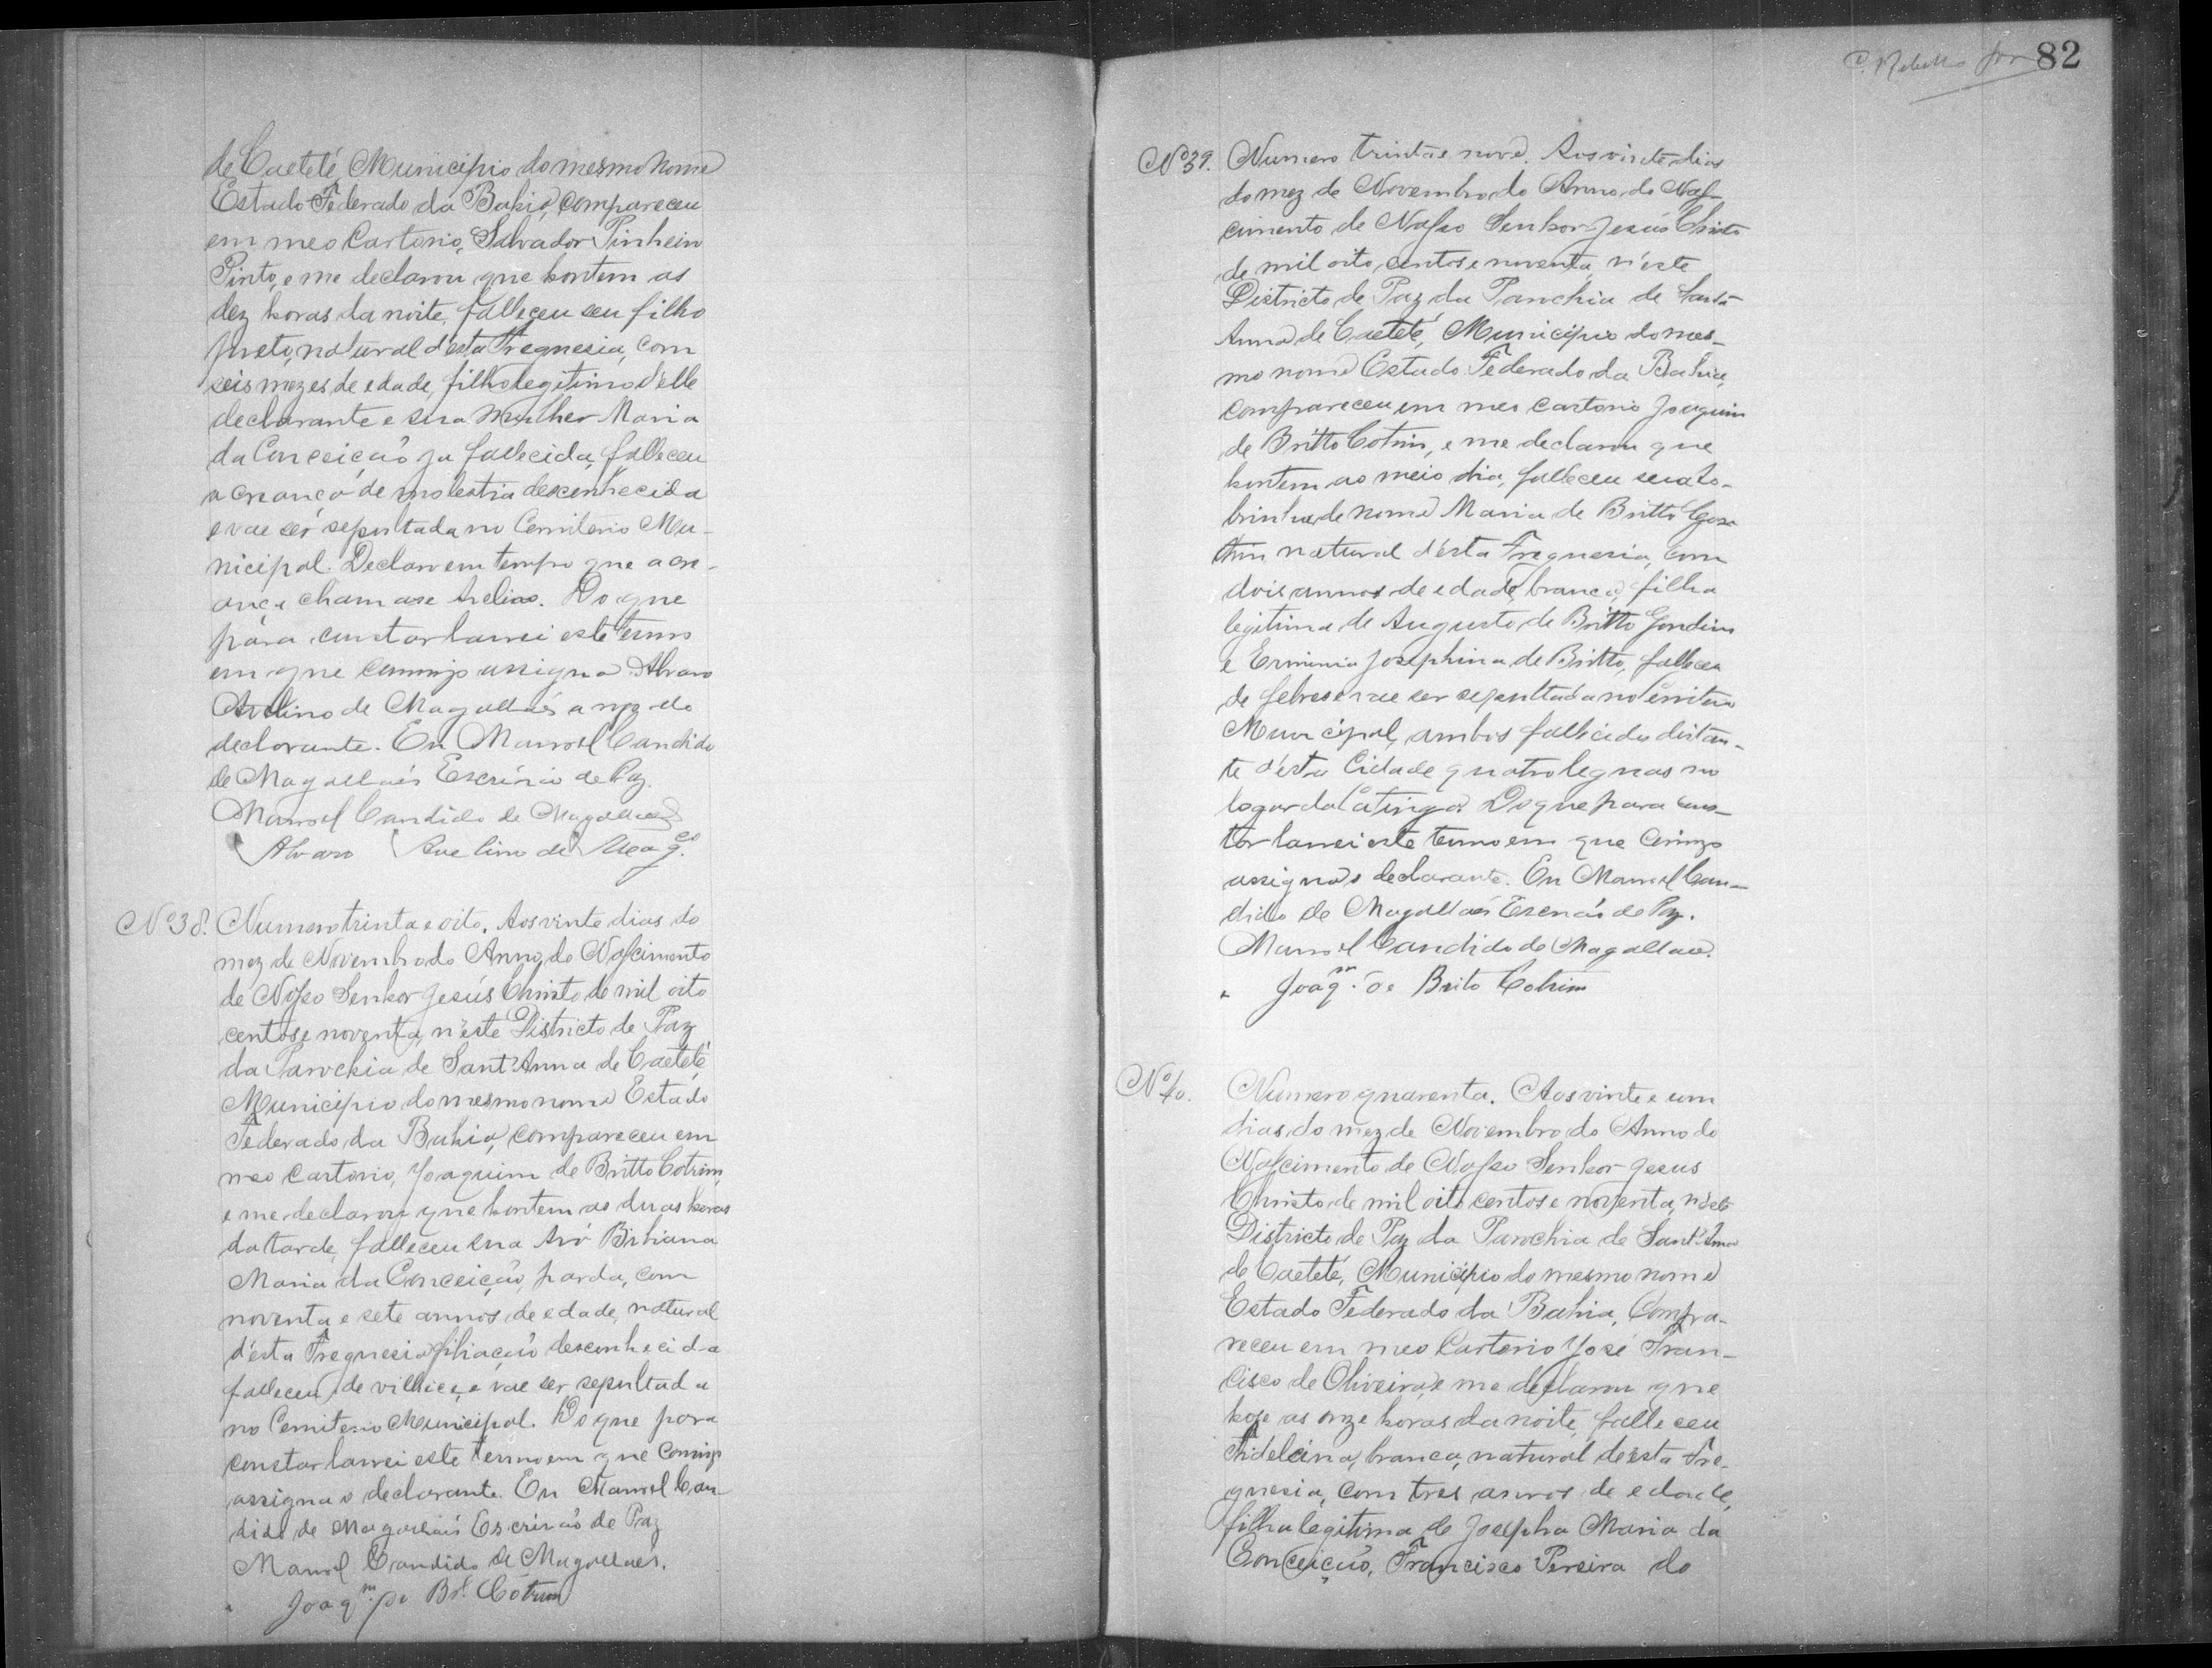 de Caeteté Municipio do mesmo nome
Estado Federado da Bahia, compareceu
em meo Cartorio, Salvador Pinheiro
Pinto, e me declarou que hontem as
dez horas da noite, falleceu seu filho
preto, natural d'esta Freguesia, com
seis mezes de edade, filho legitimo d'elle
declarante e sua mulher Maria
da Conceição ja fallecida, falleceu
a creança de molestia desconhecida
e vae ser sepultada no Cemiterio Mu-
nicipal. Declaro em tempo que a cre-
ança chamase Helias. Do que
para constar lavrei este termo
em que commigo assigna Alvaro
Avelino de Magalhães a rogo do
declarante. Eu Manoel Candido
de Magalhães Escrivão de Paz.
Manoel Candido de Magalhães
Alvaro Avelino de Mag.es
Nº 38. Numero trinta e oito. Aos vinte dias do
mez de Novembro do Anno do Nascimento
de Nosso Senhor Jesús Christo de mil oito
centos e noventa, n'este Districto de Paz
da Parochia de Sant'Anna de Caeteté
Municipio do mesmo nome Estado
Federado da Bahia, compareceu em
meo Cartorio, Joaquim de Britto Cotrim,
e me declarou que hontem as duas horas
da tarde, falleceu sua Avó Bibiana
Maria da Conceição, parda, com
noventa e sete annos de edade, natural
d'esta Freguesia, filiação desconhecida
falleceu de vilhice, e vae ser sepultada
no Cemiterio Municipal. Do que para
constar lavrei este termo em que comigo
assigna o declarante. Eu Manoel Can
dido de Magalhães Escrivão de Paz
Manoel Candido de Magalhães.
Joaqm. de Br.to Cotrim
82
Nº 39. Numero trinta e nove. Aos vinte dias
do mez de Novembro do Anno do Nas-
cimento de Nosso Senhor Jesús Christo
de mil oito centos e noventa, n'este
Districto de Paz da Parochia de Sant'-
Anna de Caeteté, Municipio do mes-
mo nome Estado Federado da Bahia,
compareceu em meo Cartorio Joaquim
de Britto Cotrim, e me declarou que
hontem ao meio dia, falleceu sua so-
brinha de nome Maria de Britto
natural d'esta Freguesia, com
dois annos de edade, branca, filha
legitima de Augusto de Britto Gondim
e Erminia Josephina de Britto, falleceu
de febres e vae ser sepultada no Cemiterio
Municipal, ambos fallecidos distan-
te d'esta Cidade quatro leguas no
logar da Catinga. Do que para cons-
tar lavrei este termo em que comigo
assigna o declarante. Eu Manoel Can-
dido de Magalhães Escrivão de Paz.
Manoel Candido de Magalhães.
Joaqm. de Brito Cotrim
Nº 40. Numero quarenta. Aos vinte e um
dias do mez de Novembro do Anno do
Nascimento de Nosso Senhor Jesus
Christo de mil oito centos e noventa, n'este
Districto de Paz da Parochia de Sant'Anna
de Caeteté, Municipio do mesmo nome
Estado Federado da Bahia, Compa-
receu em meo Cartorio José Fran-
cisco de Oliveira, e me declarou que
hoje as onze horas da noite, falleceu
Fidelcina, branca, natural d'esta Fre-
guesia, com tres annos de edade,
filha legitima de Josepha Maria da
Conceição, Francisco Pereira do